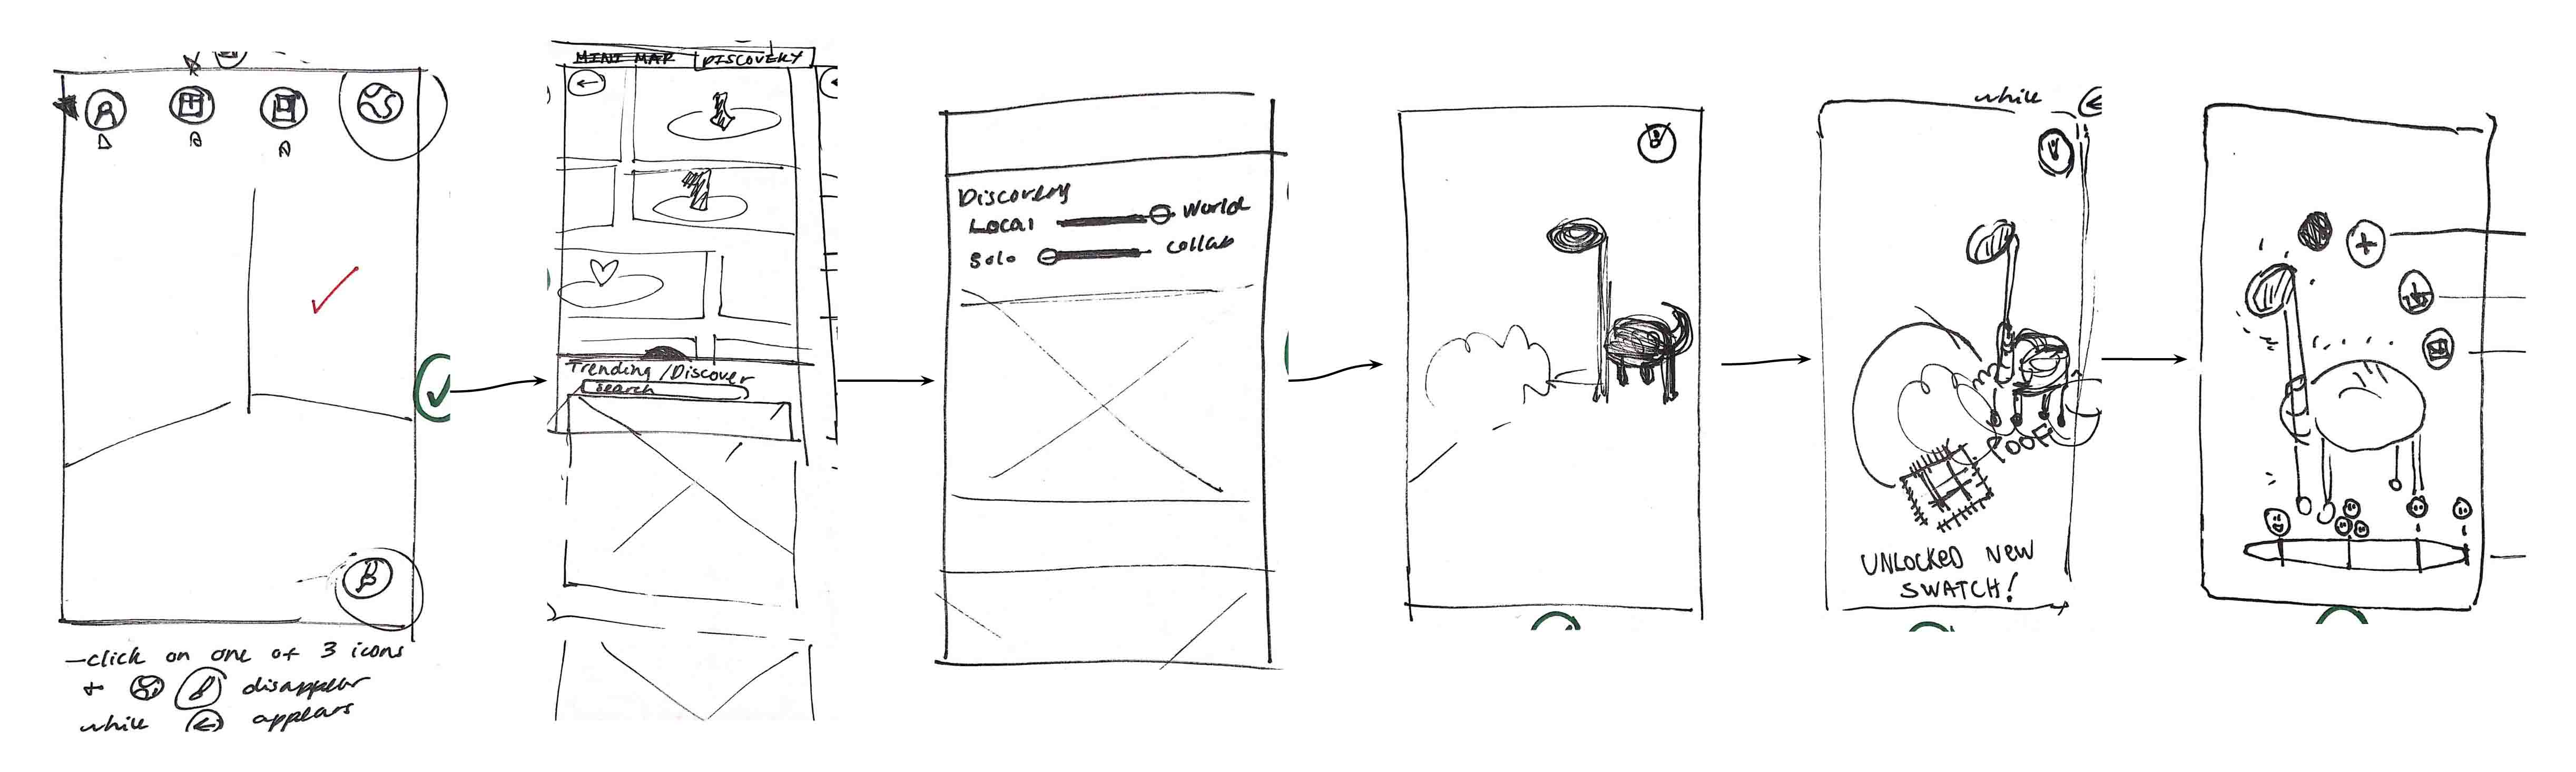 —click on one of 3 icons
+ disappear
while appears
MINI MAP DISCOVERY
Trending/Discover
search
Discovery
Local World
Solo collab
while
POOF
UNLOCKED NEW
SWATCH!